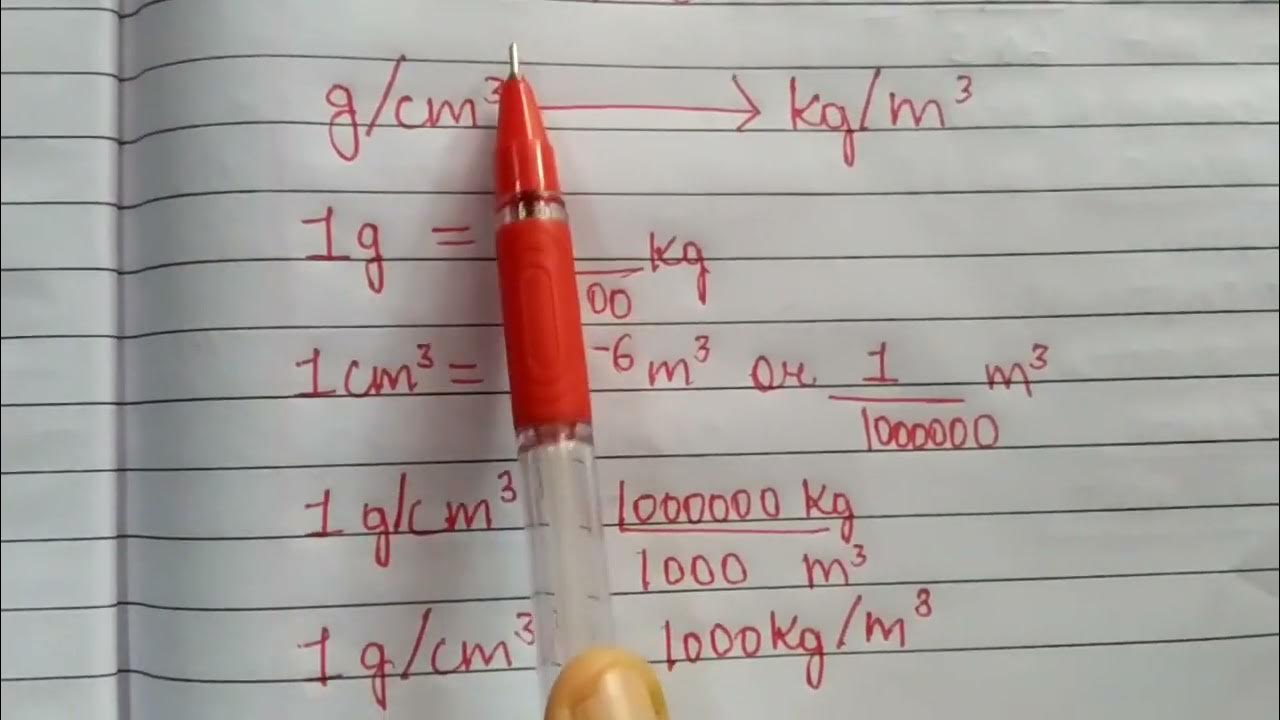 g/cm³ → kg/m³
1g = 00 kg
1cm³ = ⁻⁶ m³ or 1/1000000 m³
1 g/cm³ 1000000 kg/1000 m³
1 g/cm³ 1000kg/m³